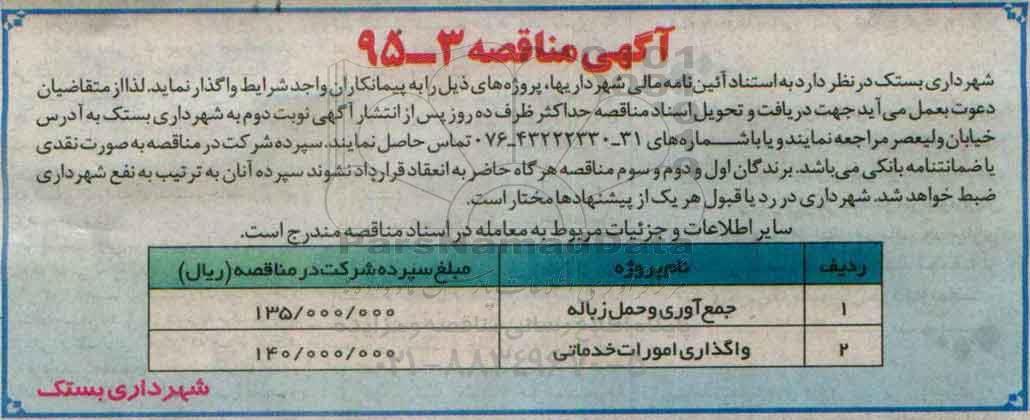 آگهی مناقصه ۳ــ۹۵
شهرداری بستک در نظر دارد به استناد آئین نامه مالی شهرداریها، پروژه‌های ذیل را به پیمانکاران واجد شرایط واگذار نماید. لذا از متقاضیان
دعوت بعمل می‌آید جهت دریافت و تحویل اسناد مناقصه حداکثر ظرف ده روز پس از انتشار آگهی نوبت دوم به شهرداری بستک به آدرس
خیابان ولیعصر مراجعه نمایند و یا با شــماره‌های ۳۱ـ۴۳۲۲۲۳۳۰ـ۰۷۶ تماس حاصل نمایند. سپرده شرکت در مناقصه به صورت نقدی
یا ضمانتنامه بانکی می‌باشد. برندگان اول و دوم و سوم مناقصه هرگاه حاضر به انعقاد قرارداد نشوند سپرده آنان به ترتیب به نفع شهرداری
ضبط خواهد شد. شهرداری در رد یا قبول هر یک از پیشنهادها مختار است.
سایر اطلاعات و جزئیات مربوط به معامله در اسناد مناقصه مندرج است.
ردیف نام پروژه مبلغ سپرده شرکت در مناقصه (ریال)
۱ جمع آوری و حمل زباله ۱۳۵/۰۰۰/۰۰۰
۲ واگذاری امورات خدماتی ۱۴۰/۰۰۰/۰۰۰
شهرداری بستک